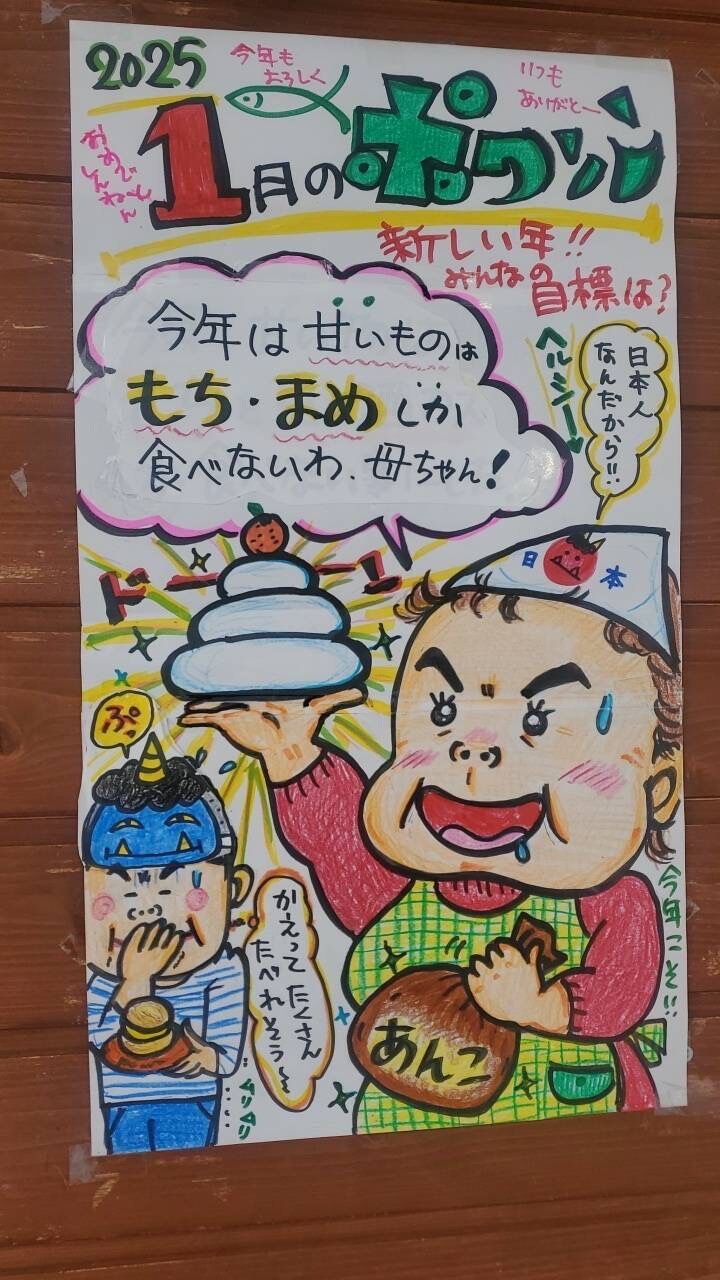 2025
今年も
よろしく
いつも
ありがとー
おめで
とんねーん
1日のポワソン
新しい年!!
みんなの
目標は?
今年は甘いものは
もち・まめしか
食べないわ、母ちゃん!
ヘルシー
日本人
なんだから!!
ドーーン!
日本
ぷっ
かえってたくさん
たべれそう
あんこ
今年こそ!!
ムリムリ